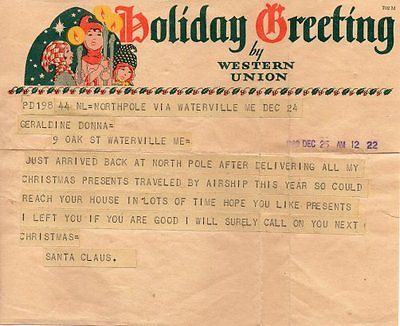 702 M
Holiday Greeting
by
WESTERN
UNION
PD198 44 NL=NORTHPOLE VIA WATERVILLE ME DEC 24
GERALDINE DONNA=
9 OAK ST WATERVILLE ME=
DEC 25 AM 12 22
JUST ARRIVED BACK AT NORTH POLE AFTER DELIVERING ALL MY
CHRISTMAS PRESENTS TRAVELED BY AIRSHIP THIS YEAR SO COULD
REACH YOUR HOUSE IN LOTS OF TIME HOPE YOU LIKE PRESENTS
I LEFT YOU IF YOU ARE GOOD I WILL SURELY CALL ON YOU NEXT
CHRISTMAS=
SANTA CLAUS.